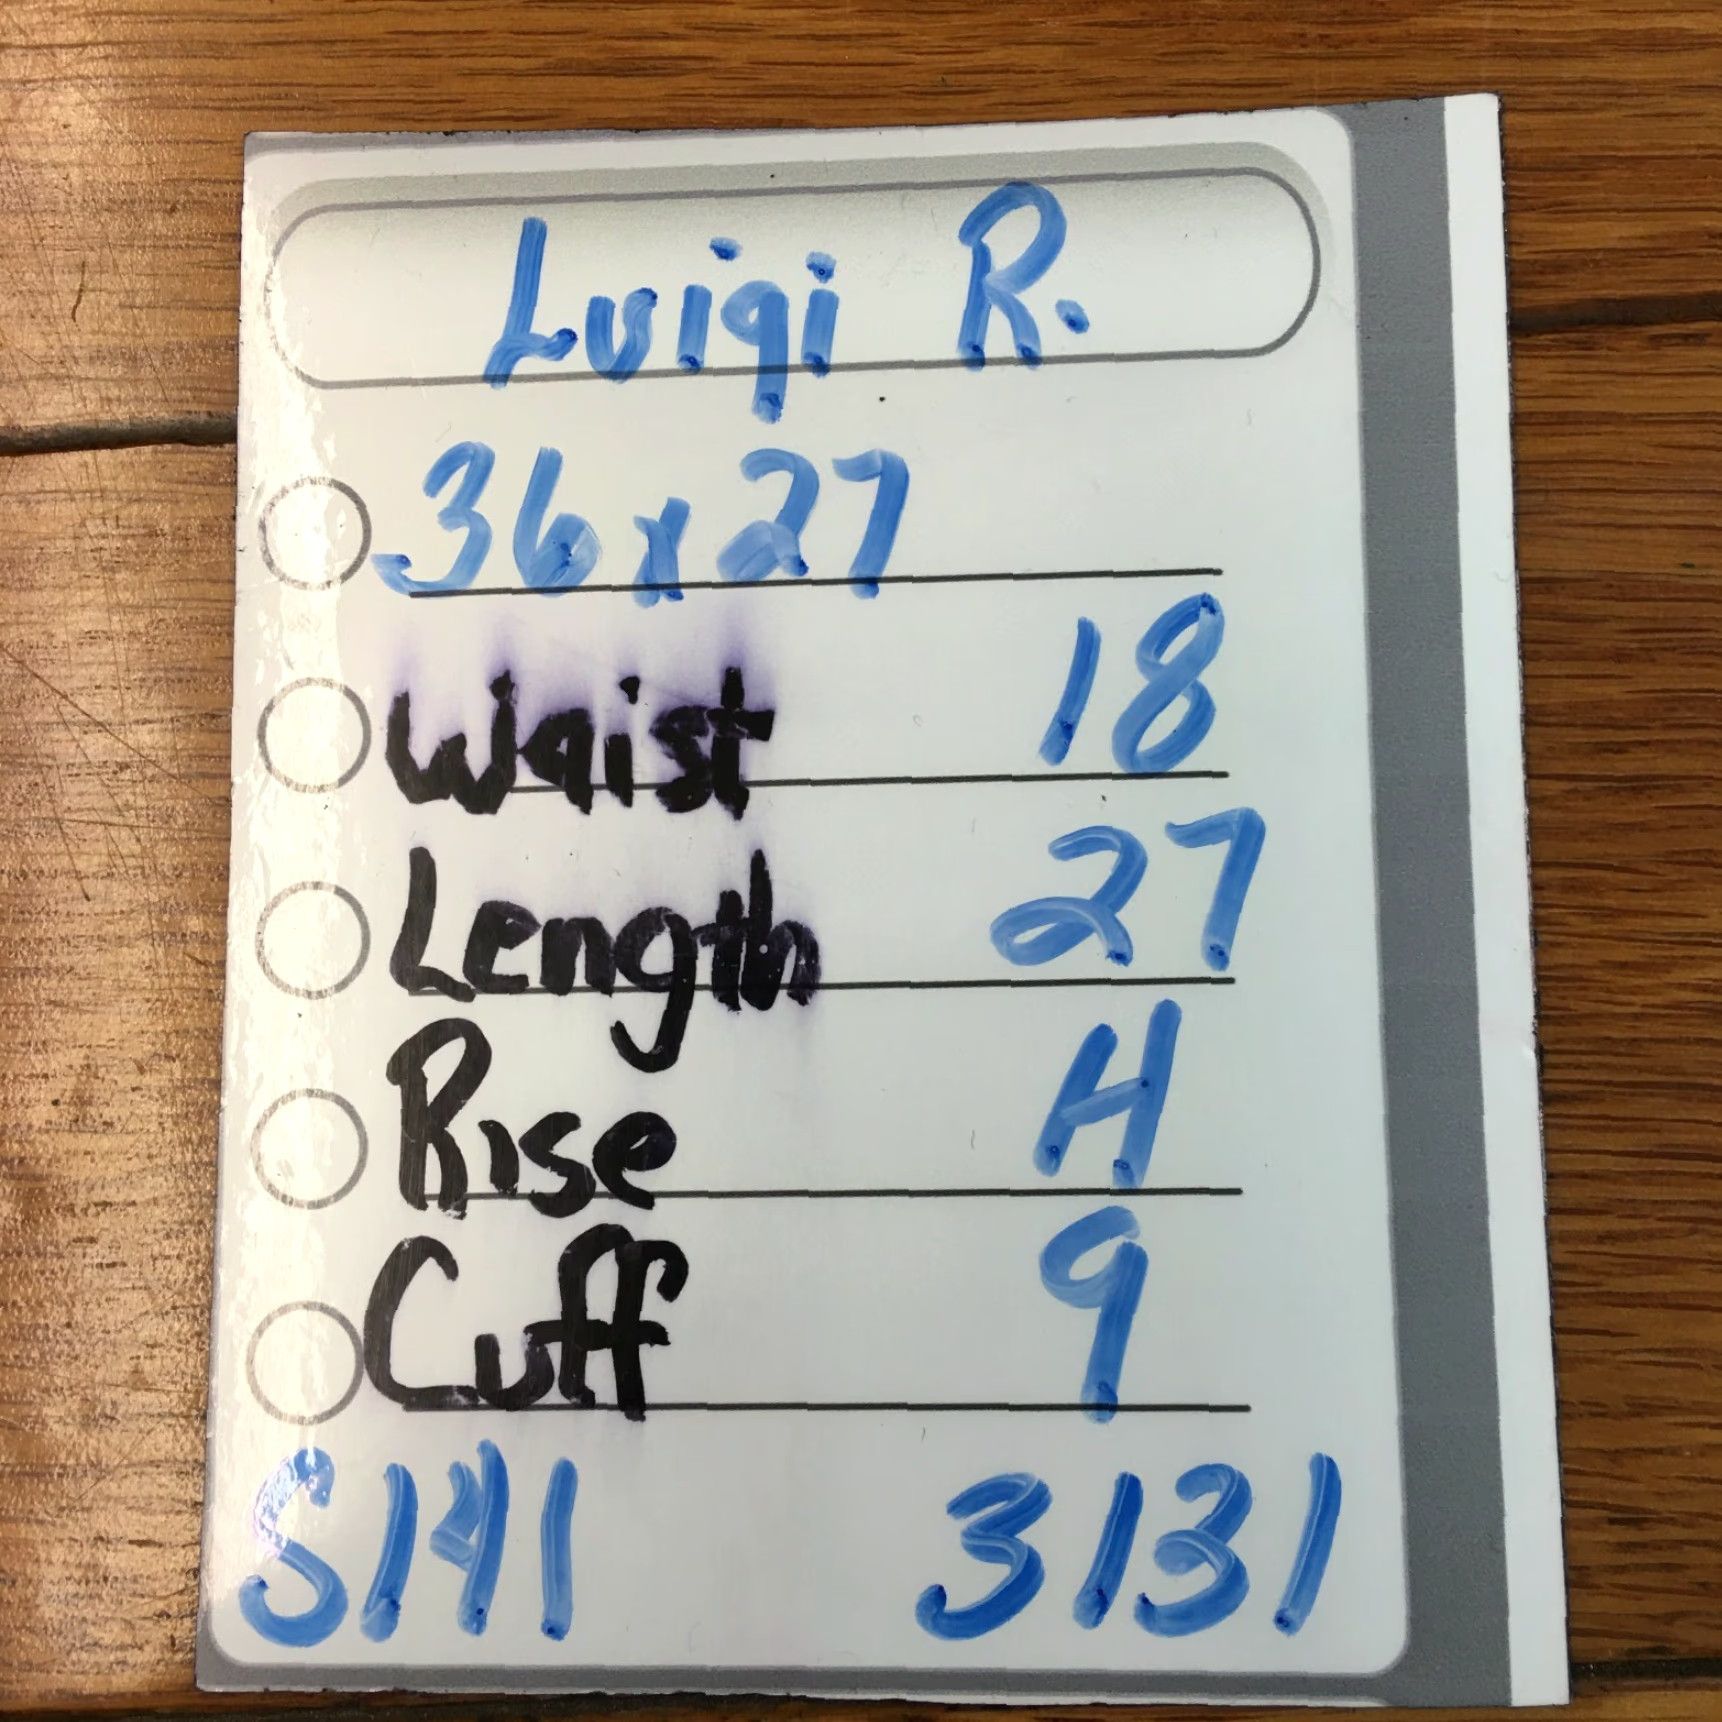 Luigi R.
36x27
Waist 18
Length 27
Rise H
Cuff 9
S141 3131